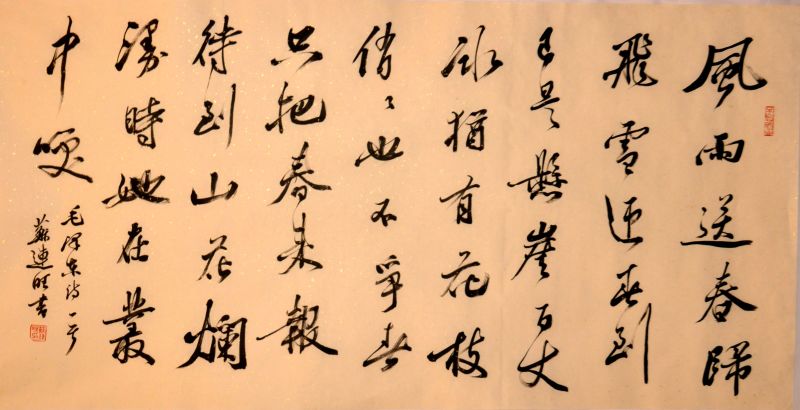 風雨送春歸
飛雪迎春到
已是懸崖百丈
冰猶有花枝
俏々也不爭春
只把春來報
待到山花爛
漫時她在叢
中咲
毛澤東詩一首
蘇連旺書